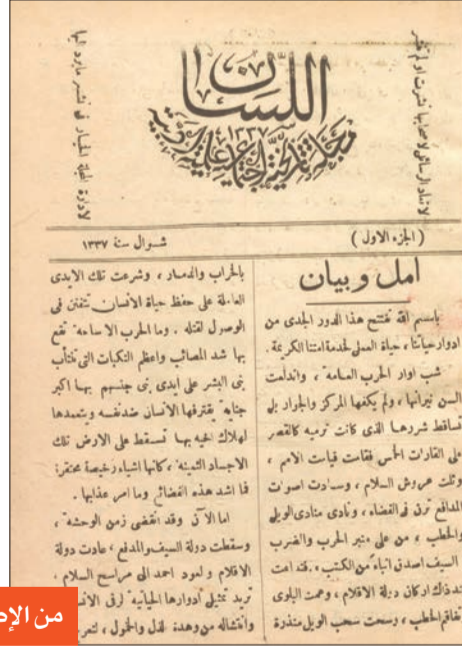 لا تعاد الرسائل لاصحابها نشرت او لم تنشر
اللسان
١٣٣٧
مجلة تاريخية اجتماعية علمية ادبية
لادارة المجلة الخيار في نشر مايرد اليها
( الجزء الاول )
شوال سنة ١٣٣٧
امل وبيان
باسم الله نفتتح هذا الدور الجدى من
ادوار حياتنا ، حياة العمل لخدمة امتنا الكريمة .
شب اوار الحرب العامة ، واندلعت
السن نيرانها ، ولم يكفها المركز والجرار بل
تساقط شررها الذى كانت ترميه كالقصر
على القارات الخمس فقامت قيامت الامم ،
وثلت عروش السلام ، وسادت اصوات
المدافع ترن فى الفضاء ، ونادى منادى الويل
والخطب ، من على منبر الحرب والضرب
السيف اصدق انباءً من الكتب ، فتداعت
عند ذاك اركان دولة الاقلام ، وعمت البلوى
وتفاقم الخطب ، وسحت سحب الويل منذرة
بالخراب والدمار ، وشرعت تلك الايدى
العاملة على حفظ حياة الانسان تتفنن فى
الوصول لقتله . وما الحرب الا ساحة تقع
بها شد المصائب واعظم النكبات التى تنتاب
بنى البشر على ايدى بنى جنسهم بها اكبر
جناية يقترفها الانسان ضد نفسه ويتعمدها
لهلاك اخيه بها تسقط على الارض تلك
الاجساد الثمينة ، كانها اشياء رخيصة محتقرة
فما اشد هذه الفضائع وما امر عذابها .
اما الآن وقد انقضى زمن الوحشة ،
وسقطت دولة السيف والمدفع ، عادت دولة
الاقلام والعود احمد الى مراسح السلام ،
تريد تمثيل ادوارها الحياتية لرقى
وانتشاله من وهدة الذل والخمول ،
من